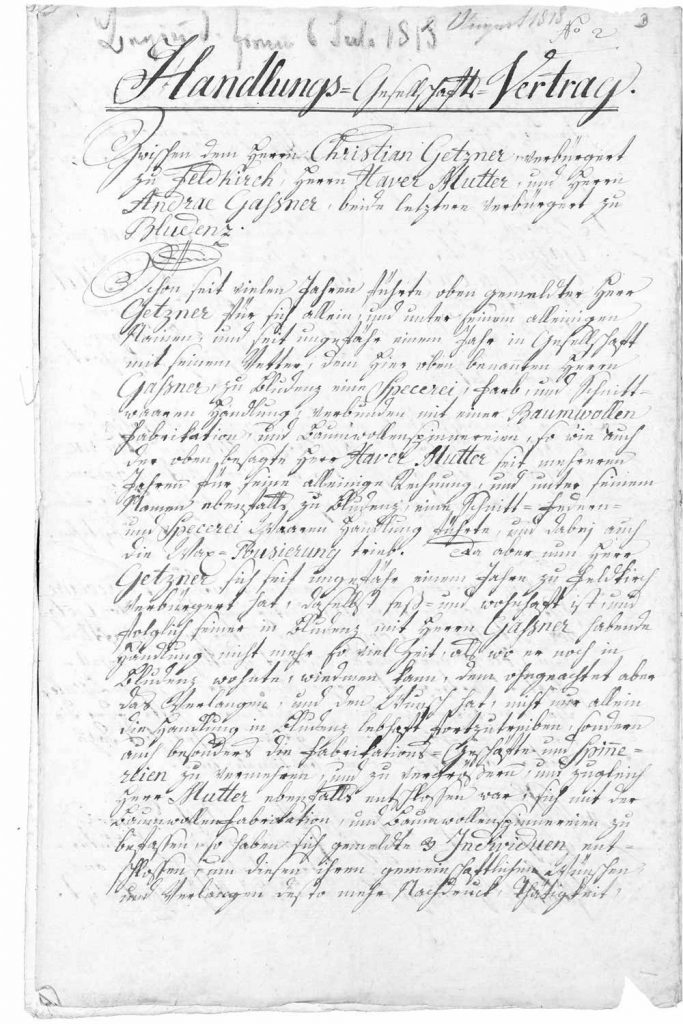 6 Juli 1818 August 1818
No 2 3
Handlungs=Gesellschafts=Vertrag.
Zwischen dem Herrn Christian Getzner, verbürgert
zu Feldkirch, Herrn Xaver Mutter, und Herrn
Andrae Gaßner, beide letztere verbürgert zu
Bludenz.
Schon seit vielen Jahren führte oben gemeldter Herr
Getzner für sich allein, und unter seinem alleinigen
Namen, und seit ungefähr einem Jahr in Gesellschaft
mit seinem Vetter, dem hier oben benanten Herrn
Gaßner, zu Bludenz eine Specerei, Farb, und Schnitt=
waaren Handlung, verbunden mit einer Baumwollen
Fabrikation, und Baumwollenspinnereien, so wie auch
der oben besagte Herr Xaver Mutter seit mehreren
Jahren für seine alleinige Rechnung, und unter seinem
Namen ebenfalls zu Bludenz, eine Schnitt= Federn=
und Specerei Waaren Handlung führte, und dabej auch
die Wax= trieb. Da aber nun Herr
Getzner sich seit ungefähr einem Jahre zu Feldkirch
verbürgert hat, daselbst seß= und wohnhaft ist, und
folglich seiner in Bludenz mit Herrn Gaßner habende
Handlung nicht mehr so viel Zeit, als wo er noch in
Bludenz wohnte, wiedmen kann, dem ohngeachtet aber
das Verlangen, und den Wunsch hat, nicht nur allein
die Handlung in Bludenz lebhaft fortzutreiben, sondern
auch besonders die Fabrikations=Geschäfte und Spinne=
reien zu vermehren, und zu vergrößern, und zugleich
Herr Mutter ebenfalls entschlossen war, sich mit der
Baumwollenfabrikation, und Baumwollenspinnereien zu
befassen, so haben sich gemeldte 3 Individuen ent=
schlossen, um diesen ihren gemeinschaftlichen Wünschen
und Verlangen desto mehr Nachdruck, Thätigkeit,